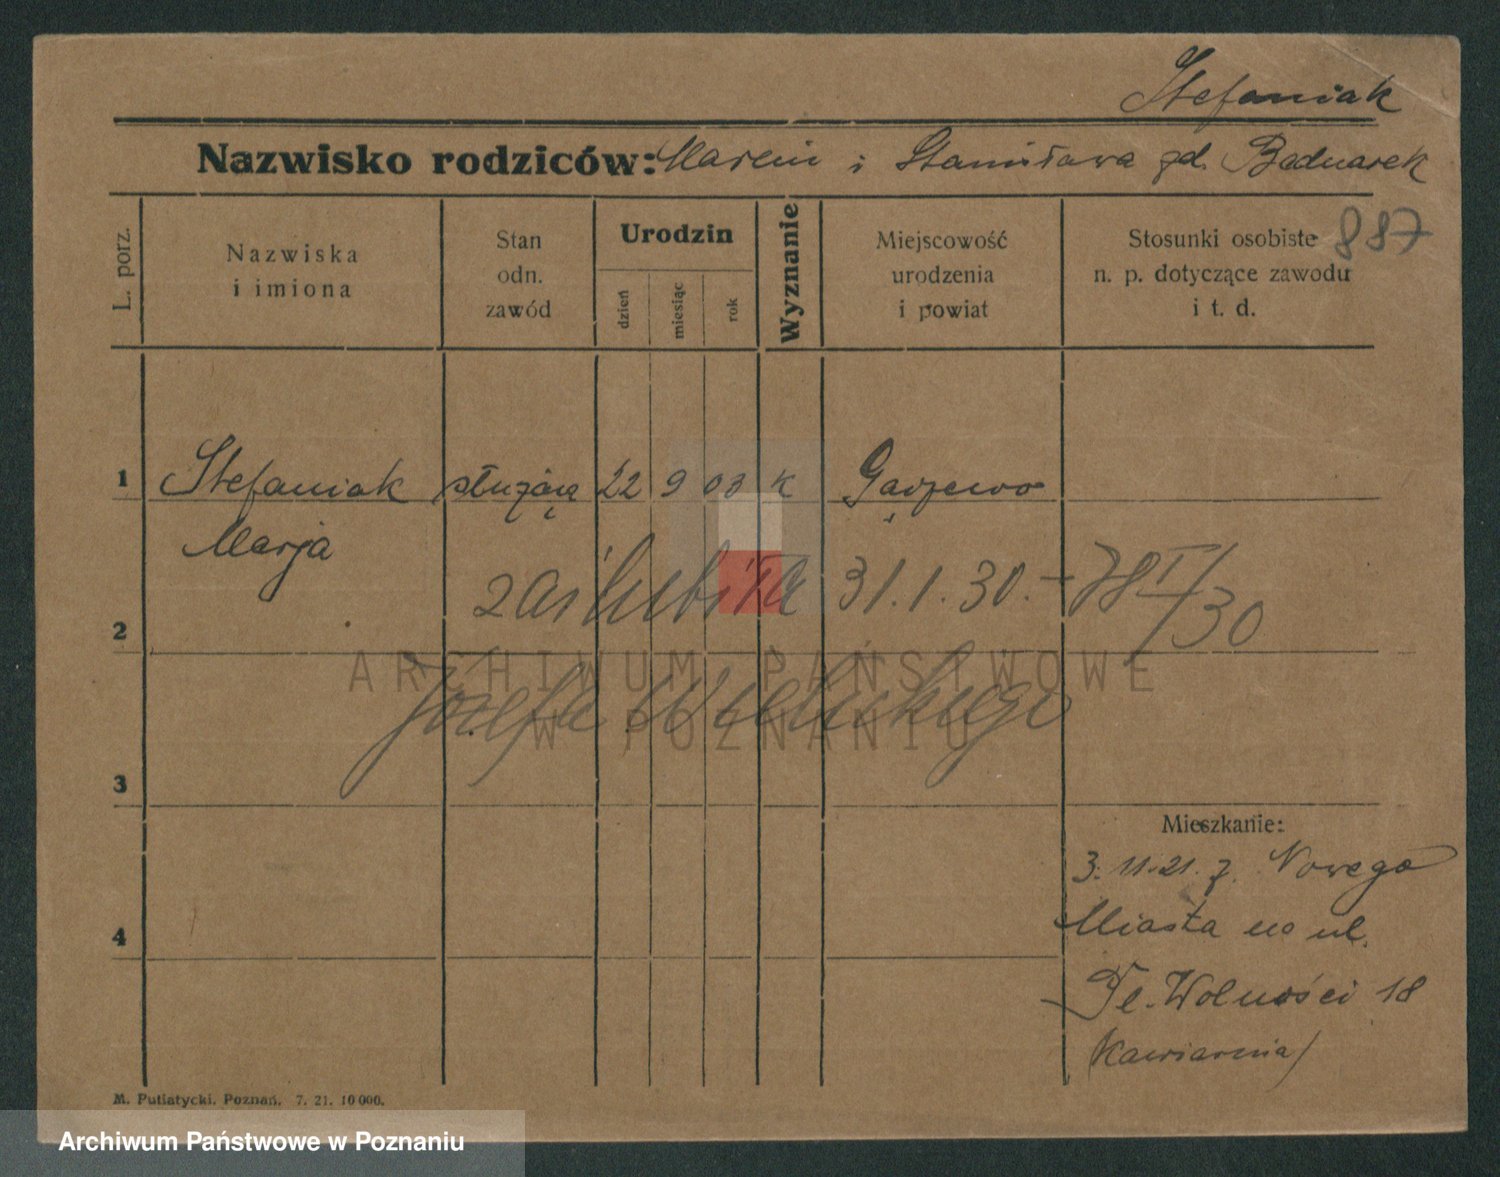 Stefaniak
Nazwisko rodziców: Marcin i Stanisława zd. Bednarek
887
L. porz.
Nazwiska
i imiona
Stan
odn.
zawód
Urodzin
dzień
miesiąc
rok
Wyznanie
Miejscowość
urodzenia
i powiat
Stosunki osobiste
n. p. dotyczące zawodu
i t. d.
1 Stefaniak służąca 22 9 03 k
Marja
zaślubiła 31.1.30. - 78 I/30
2
Józefa
3
Mieszkanie:
3.11.21. z Nowego
Miasta na ul.
4
Pl. Wolności 18
(kawiarnia)
M. Putiatycki, Poznań. 7. 21. 10 000.
ARCHIWUM PAŃSTWOWE
W POZNANIU
Archiwum Państwowe w Poznaniu